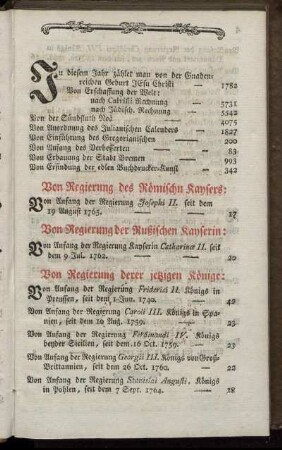 In diesem Jahr zählet man von der Gnaden-
reichen Geburt JEsu Christi — 1782
Von Erschaffung der Welt:
nach Calvisii Rechnung — 5731
nach Jüdisch. Rechnung — 5542
Von der Sündfluth Noä — 4075
Von Anordnung des Julianischen Calenders — 1827
Von Einführung des Gregorianischen — 200
Von Anfang des Verbesserten — 83
Von Erbauung der Stadt Bremen — 993
Von Erfindung der edlen Buchdrucker-Kunst — 342
Von Regierung des Römischn Kaysers:
Von Anfang der Regierung Josephi II. seit dem
19 August 1765. — 17
Von Regierung der Rußischen Kayserin:
Von Anfang der Regierung Kayserin Catharinæ II. seit
dem 9 Jul. 1762. — 20
Von Regierung derer jetzigen Könige:
Von Anfang der Regierung Friderici II. Königs in
Preussen, seit dem 1 Jun. 1740. — 42
Von Anfang der Regierung Caroli III. Königs in Spa-
nien, seit dem 10 Aug. 1759. — 23
Von Anfang der Regierung Ferdinandi IV. Königs
beyder Sicilien, seit dem 16 Oct. 1759. — 23
Von Anfang der Regierung Georgii III. Königs von Groß-
Brittannien, seit dem 26 Oct. 1760. — 22
Von Anfang der Regierung Stanislai Augusti, Königs
in Pohlen, seit dem 7 Sept. 1764. — 18